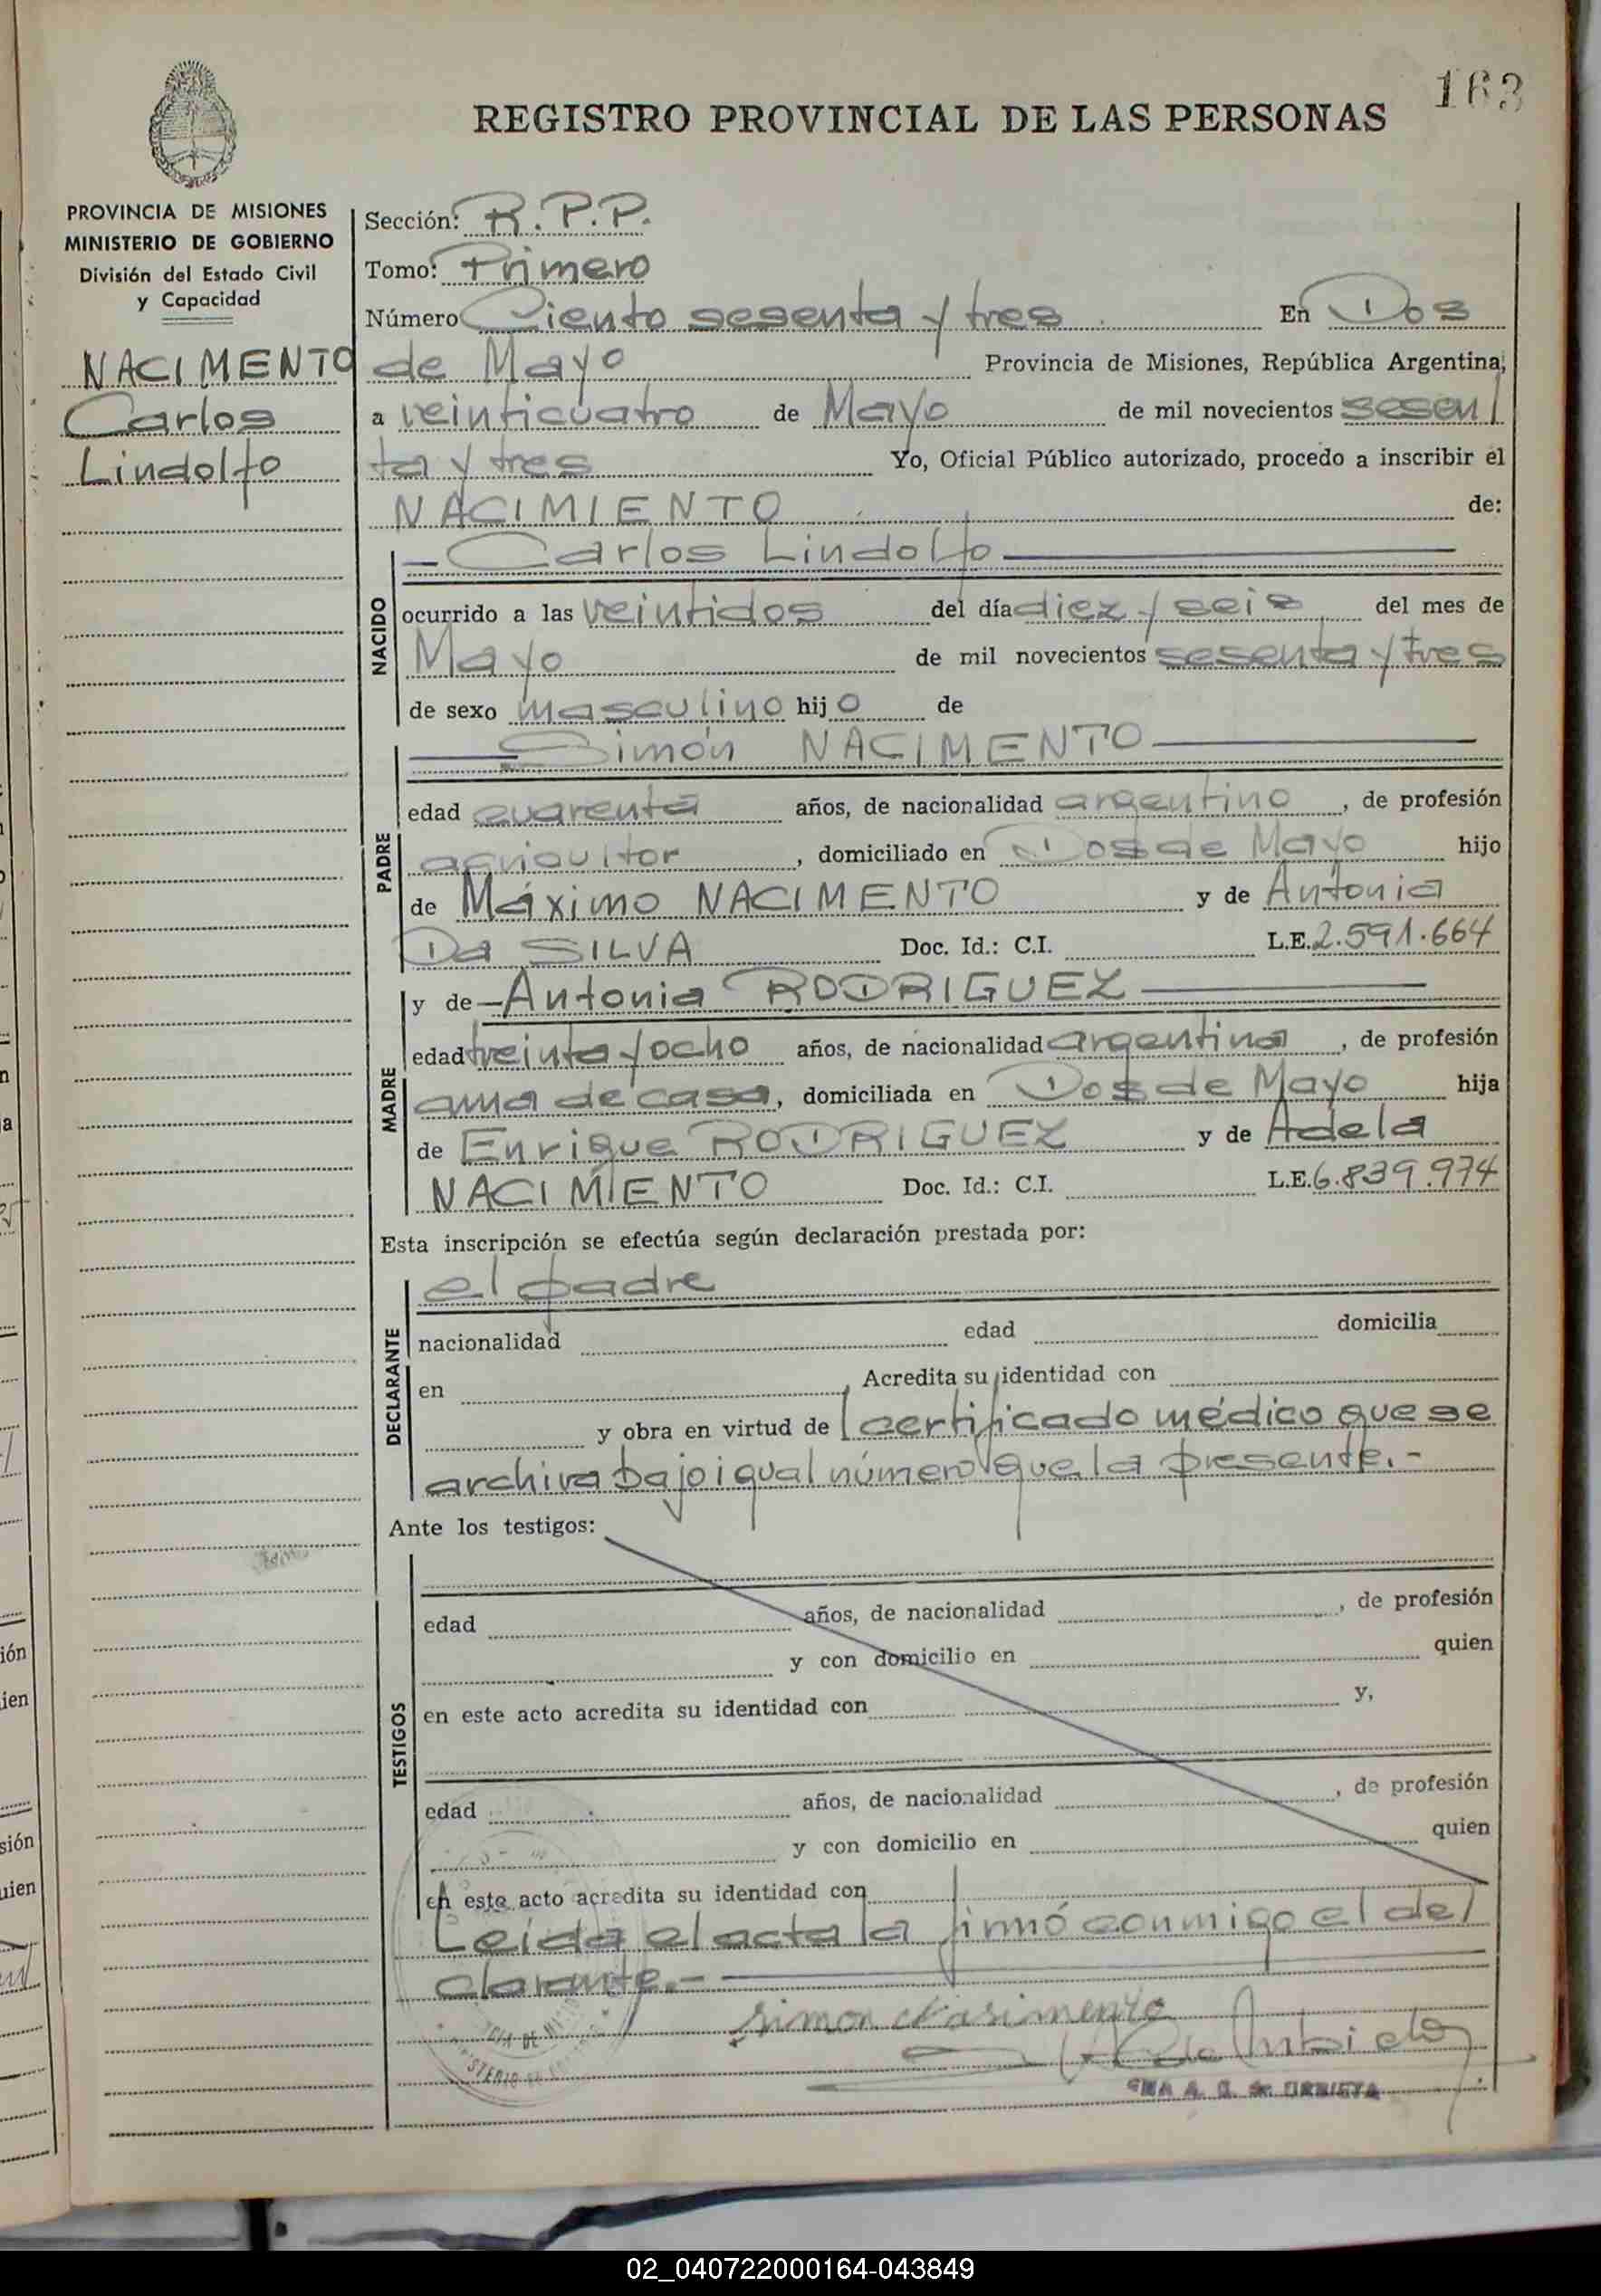 163
REGISTRO PROVINCIAL DE LAS PERSONAS
PROVINCIA DE MISIONES
MINISTERIO DE GOBIERNO
División del Estado Civil
y Capacidad
NACIMENTO
Carlos
Lindolfo
Sección: R.P.P.
Tomo: Primero
Número Ciento sesenta y tres En Dos
de Mayo Provincia de Misiones, República Argentina,
a veinticuatro de Mayo de mil novecientos sesen
ta y tres Yo, Oficial Público autorizado, procedo a inscribir el
NACIMIENTO de:
NACIDO
Carlos Lindolfo
ocurrido a las veintidos del día diez y seis del mes de
Mayo de mil novecientos sesenta y tres
de sexo masculino hijo de
PADRE
Simón NACIMENTO
edad cuarenta años, de nacionalidad argentino, de profesión
agricultor, domiciliado en Dos de Mayo hijo
de Máximo NACIMENTO y de Antonia
Da SILVA Doc. Id.: C.I. L.E. 2.591.664
MADRE
y de Antonia RODRIGUEZ
edad treinta y ocho años, de nacionalidad argentina, de profesión
ama de casa, domiciliada en Dos de Mayo hija
de Enrique RODRIGUEZ y de Adela
NACIMIENTO Doc. Id.: C.I. L.E. 6.839.974
Esta inscripción se efectúa según declaración prestada por:
DECLARANTE
el padre
nacionalidad edad domicilia
en Acredita su identidad con
y obra en virtud de certificado médico que se
archiva bajo igual número que la presente.-
Ante los testigos:
TESTIGOS
edad años, de nacionalidad , de profesión
y con domicilio en quien
en este acto acredita su identidad con y,
edad años, de nacionalidad , de profesión
y con domicilio en quien
en este acto acredita su identidad con
Leída el acta la firmó conmigo el de
clarante.-
simon Nasimento
02_040722000164-043849